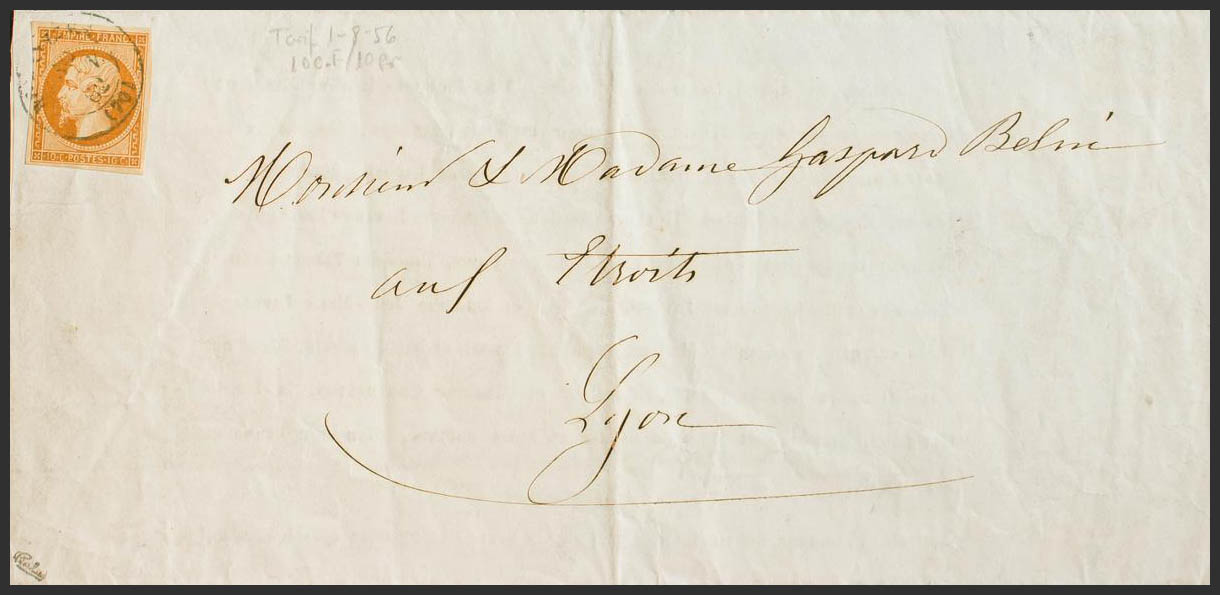 EMPIRE FRANC
10·C·POSTES·10·C
Tarif 1-8-56
10c.F/10gr
Monsieur & Madame Gaspard Belin
aux Etroits
Lyon